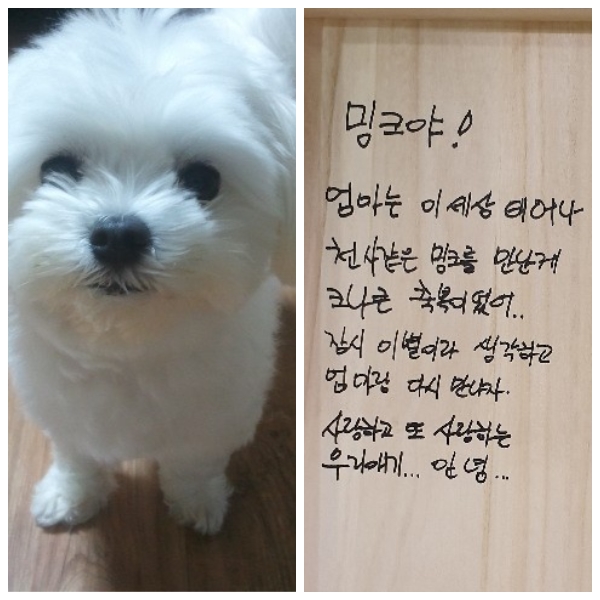 밍크야!
엄마는 이 세상 태어나
천사같은 밍크를 만난게
크나큰 축복이었어..
잠시 이별이라 생각하고
엄마랑 다시 만나자.
사랑하고 또 사랑하는
우리애기... 안녕...